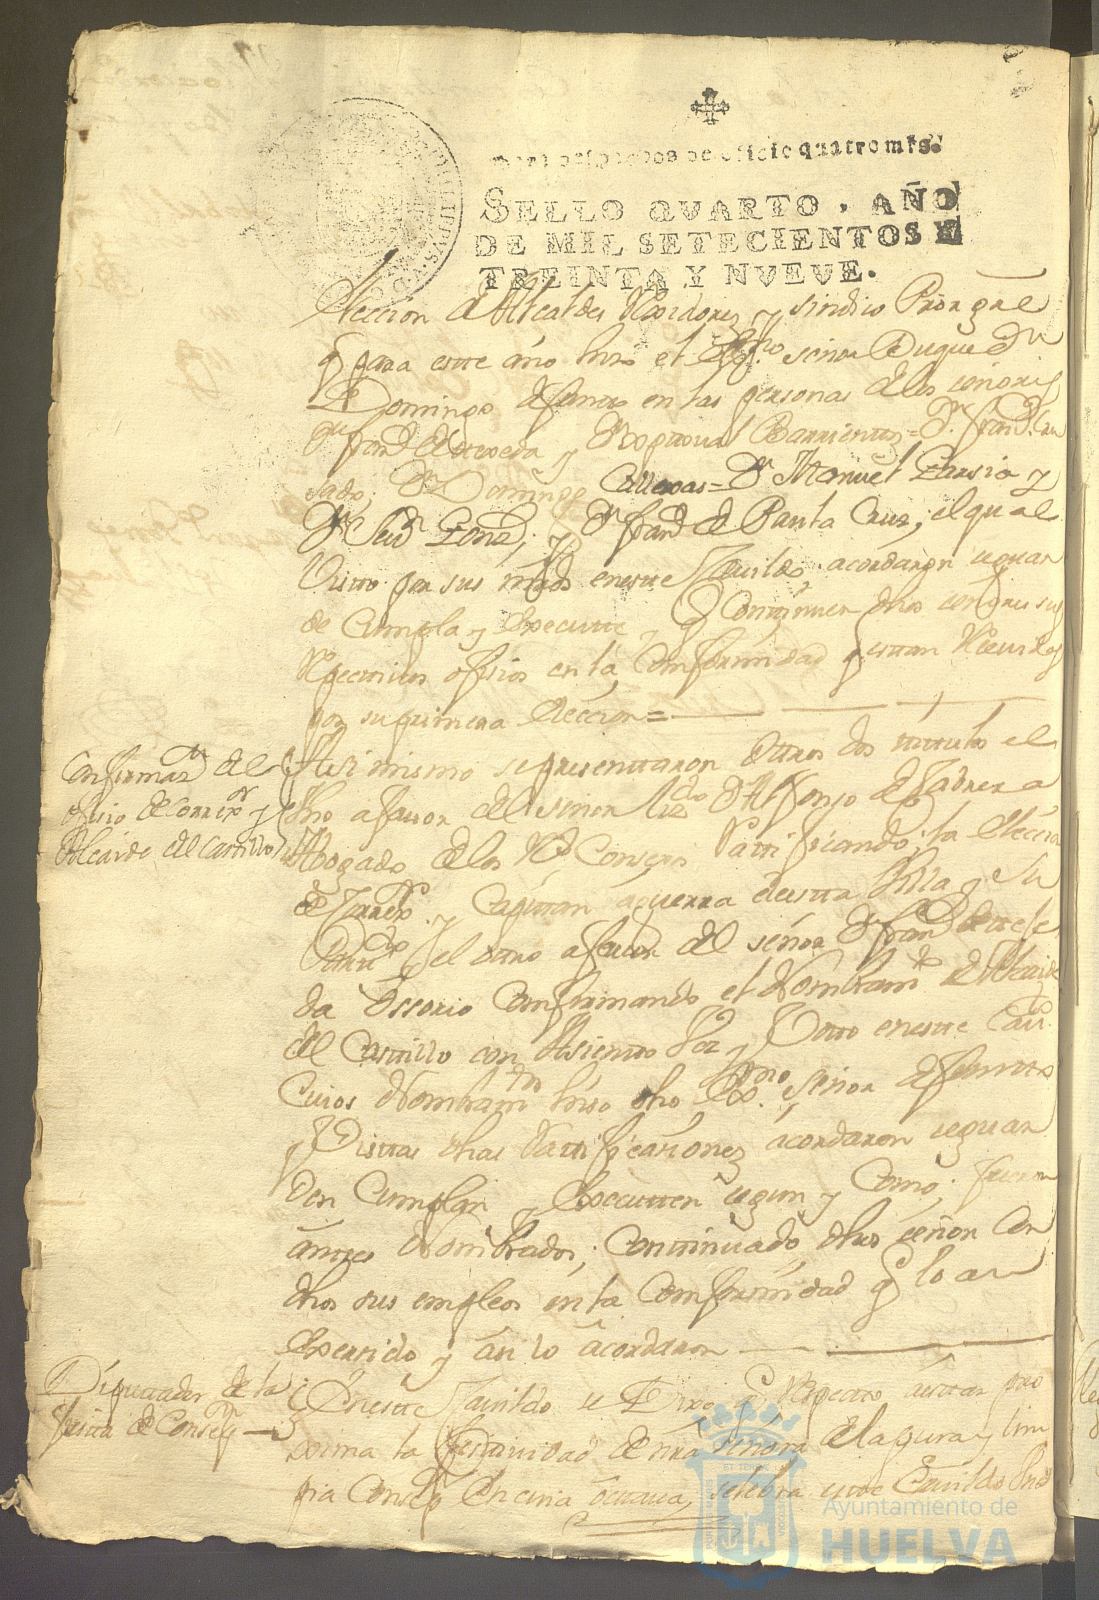 de oficio quatro mrs.
SELLO QVARTO, AÑO
DE MIL SETECIENTOS Y
TREINTA Y NVEVE.
eleccion de Alcaldes Rexidores y sindico Pror gral
q para este año hizo el señor Duque Dn
Domingo de en las personas de los señores
Dn frando de Texeda y Dn Barrientos = Dn frando
Dn Domingo = Dn Manuel Garsia y
y Dn frando de Santa Cruz; el qual
Visto por sus mrds en este Cavildo, acordaron se guar
de Cumpla y execute, y Continuen dhos señores sus
Respectivos ofisios en la Comformidad q estan Recividos
por su primera eleccion =
Confirmazn del
ofisio de Correxor y
Alcaide del Castillo
Asi mismo se presentaron otros dos titulos el
Uno a favor del señor Lizdo Dn Alfonso de Cabrera
Abogado de los Rs Consejos Ratificando la elecion
de Correxor y Capitan aguerra de esta Villa y su
y el otro a favor del señor Dn frando de texe
da Ossorio Confirmando el Nombramto de Alcaide
del Castillo con Asiento Voz y Voto en este Cavdo
Cuios Nombramtos hiso dho Exmo señor
y Vistas dhas Ratificasiones acordaron se guar
den Cumplan y Executten segun y Como; fueron
antes Nombrados; Continuado dhos señor Con
dhos sus empleos en la Comformidad q lo an
Exersido y asi lo acordaron
Diputados de la
fiesta de Consepn
En este Cavildo se Dixo q Respecto aestar pro
xima la festividad de nra señora de la pura y lim
pia Consepn En cuia octava, selebra este Cavildo
Ayuntamiento de
HUELVA